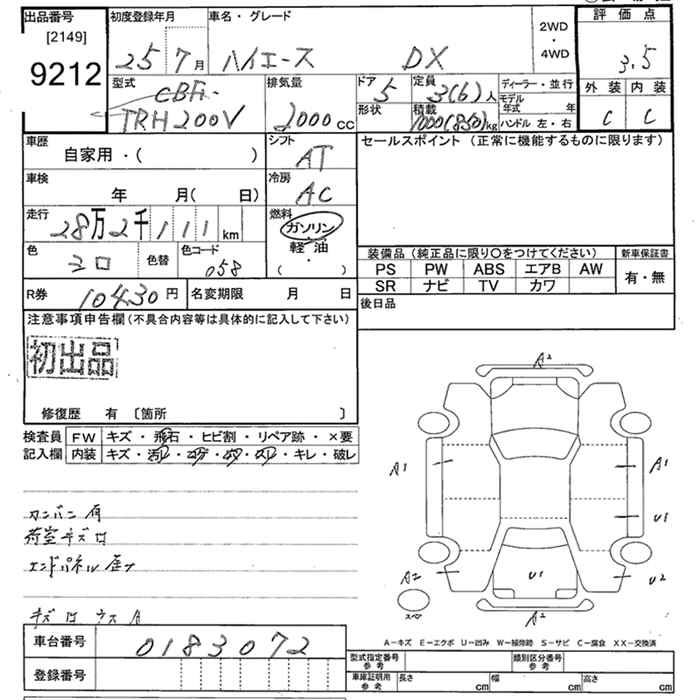 出品番号 [2149] 9212
初度登録年月 25年 7月
車名・グレード ハイエース DX
2WD・4WD
評価点 3.5
外装 C 内装 C
型式 CBF- TRH200V
排気量 2000cc
ドア 5
形状
定員 3(6)人
積載 1000(850)kg
ディーラー・並行
モデル年式 年
ハンドル 左・右
車歴 自家用・( )
シフト AT
セールスポイント(正常に機能するものに限ります)
車検 年 月( 日)
冷房 AC
走行 28万2千111km
燃料 ガソリン 軽油 ( ・ )
色 シロ 色替 色コード 058
装備品(純正品に限り○をつけてください) 新車保証書
PS PW ABS エアB AW 有・無
SR ナビ TV カワ
R券 10430円 名変期限 月 日
後日品
注意事項申告欄(不具合内容等は具体的に記入して下さい)
初出品
修復歴 有 〔箇所 〕
検査員記入欄 FW キズ・飛石・ヒビ割・リペア跡・×要
内装 キズ・汚レ・コゲ・穴・スレ・キレ・破レ
カンバン有
荷室キズロ
エンドパネル歪ノ
A2
A1 A1
U1
A2 U1 U2
A2
A-キズ E-エクボ U-凹み W-補修跡 S-サビ C-腐食 XX-交換済
車台番号 0183072
登録番号
型式指定番号 参考 類別区分番号 参考
車庫証明用 参考 長さ cm 幅 cm 高さ cm